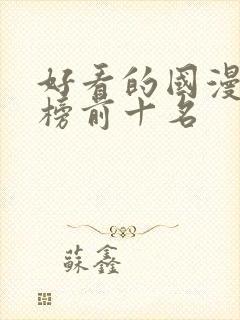 好看的國漫
榜前十名
蘇鑫